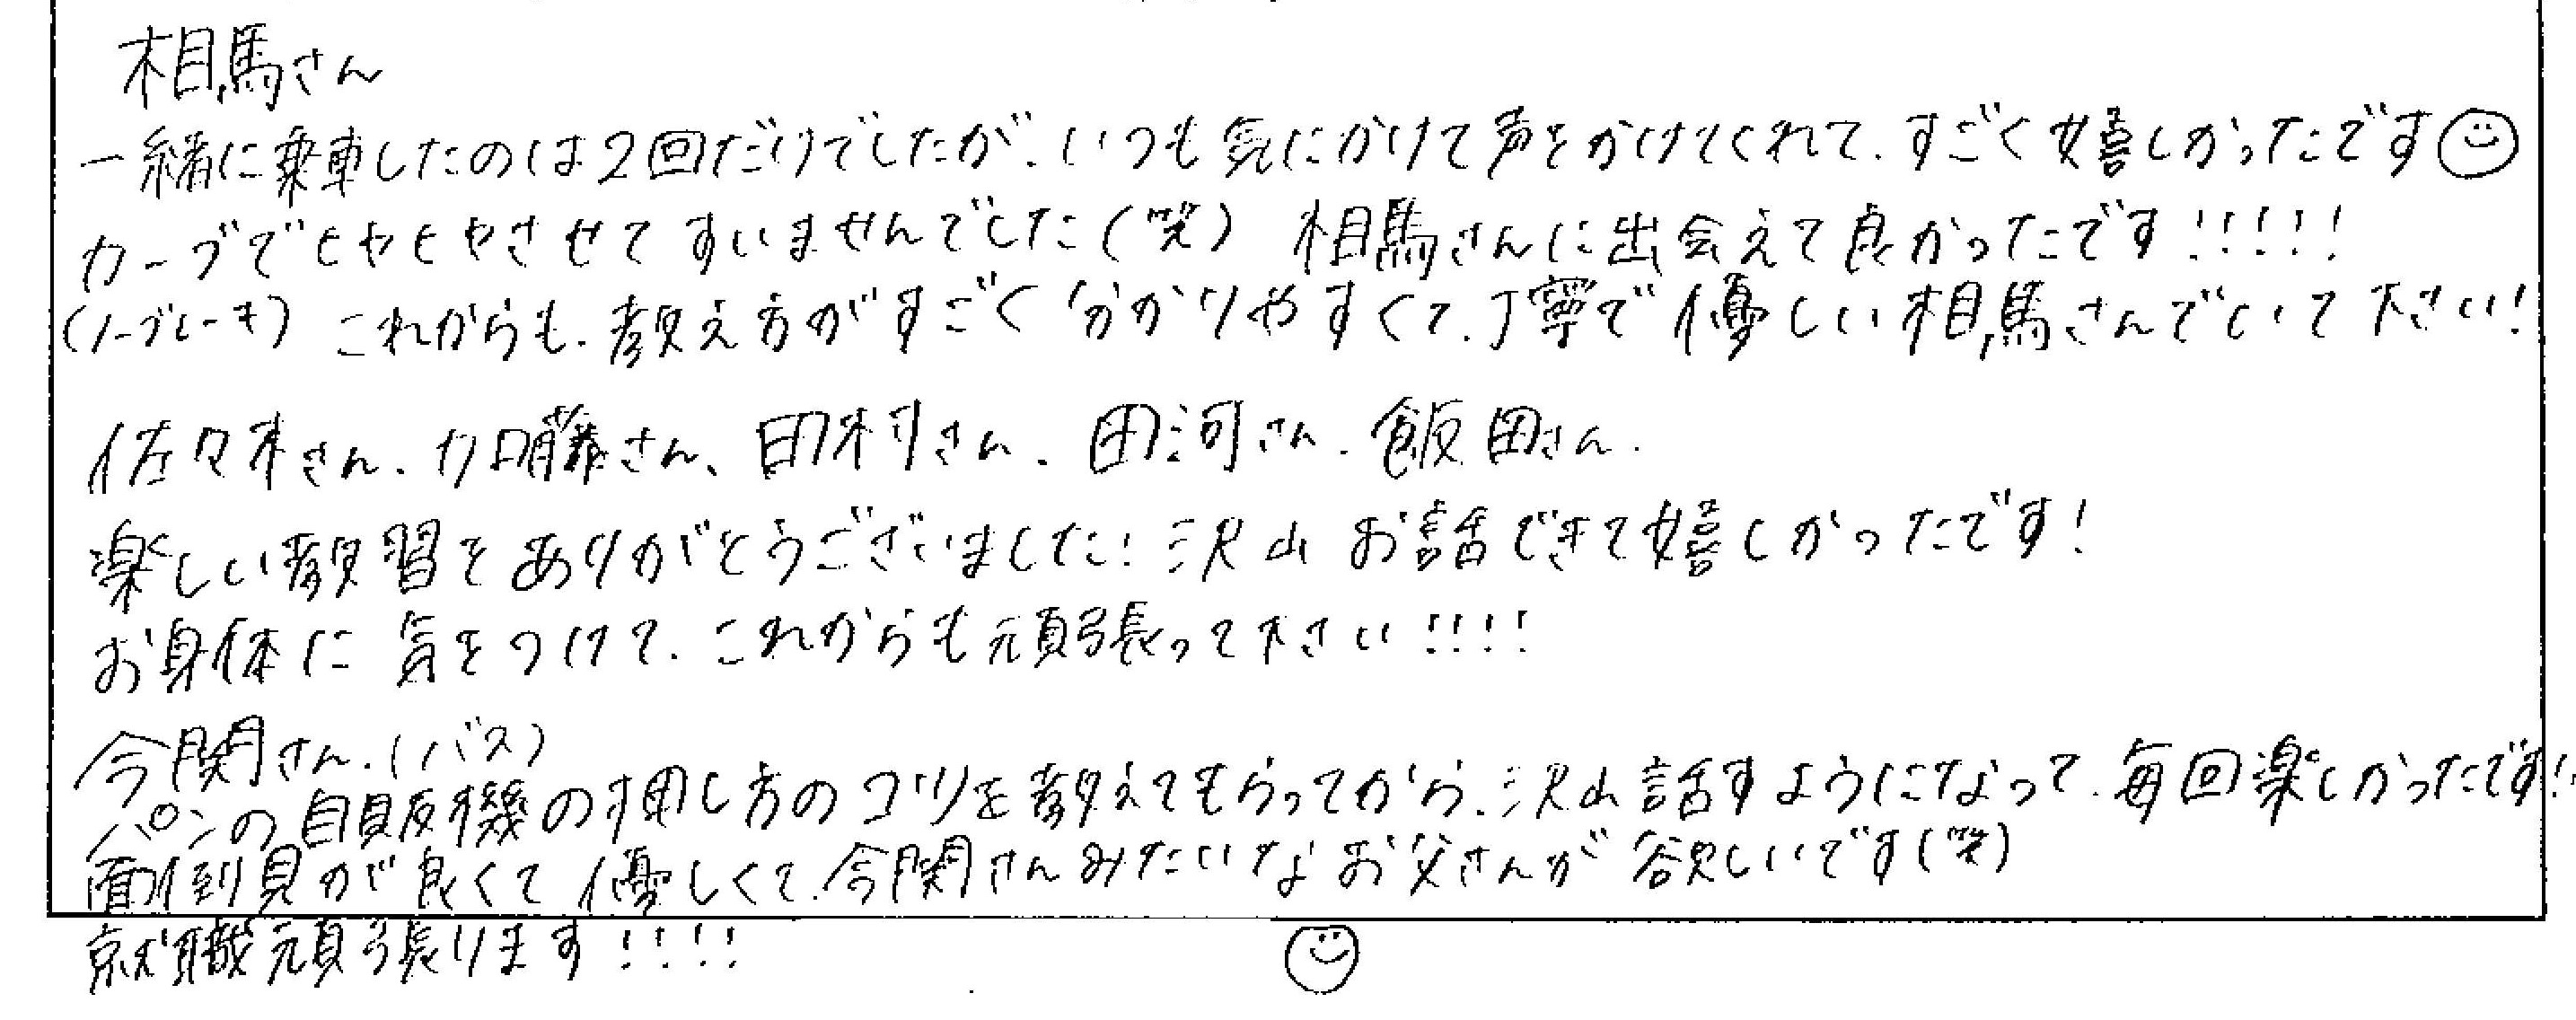 相馬さん
一緒に乗車したのは2回だけでしたが、いつも気にかけて声をかけてくれて、すごく嬉しかったです
カーブでヒヤヒヤさせてすいませんでした(笑) 相馬さんに出会えて良かったです!!!!!
(ノーブレーキ) これからも、教え方がすごく分かりやすくて、丁寧で優しい相馬さんでいて下さい!
佐々木さん、加藤さん、田村さん、田河さん、飯田さん、
楽しい教習をありがとうございました! 沢山お話できて嬉しかったです!
お身体に気をつけて、これからも頑張って下さい!!!!
今関さん、(バス)
パンの自販機の押し方のコツを教えてもらってから、沢山話すようになって、毎回楽しかったです!!
面倒見が良くて優しくて、今関さんみたいなお父さんが欲しいです(笑)
就職頑張ります!!!!